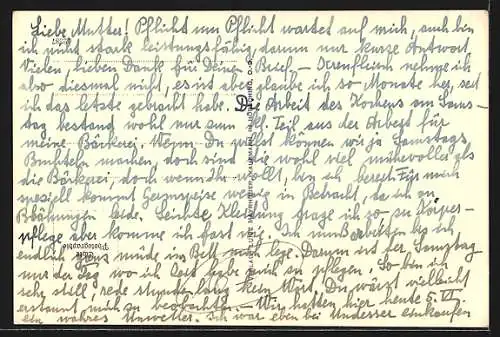 Liebe Mutter! Pflicht um Pflicht wartet auf mich, auch bin
ich nicht stark leistungsfähig, darum nur kurze Antwort.
Vielen, lieben Dank für Deine Brief. – nehme ich
also diesmal nicht, es ist aber glaube ich so Monate her, seit
ich das letzte gebracht habe. Die Arbeit des Kochens am Sams-
tag bestand wohl nur zum Teil aus der Arbeit für
meine Bäckerei. Wenn Du willst können wir ja Samstags
machen, doch sind die wohl viel mühevoller als
die Bäckerei, doch wenn Ihr wollt, bin ich bereit. Für mich
speziell kommt wenig in Betracht, da ich an
Blähungen leide. Leichte Kleidung trage ich ja, zu Körper-
pflege aber komme ich fast nie. Ich muß arbeiten bis ich
endlich ganz müde ins Bett mich lege. Darum ist der Samstag
nur der Tag wo ich Zeit habe mich zu pflegen. So bin ich
sehr still, rede stundenlang kein Wort. Du wärst vielleicht
erstaunt mich zu beobachten. – Wir hatten hier heute 5. VII.
ein wahres Unwetter. Ich war eben bei einkaufen